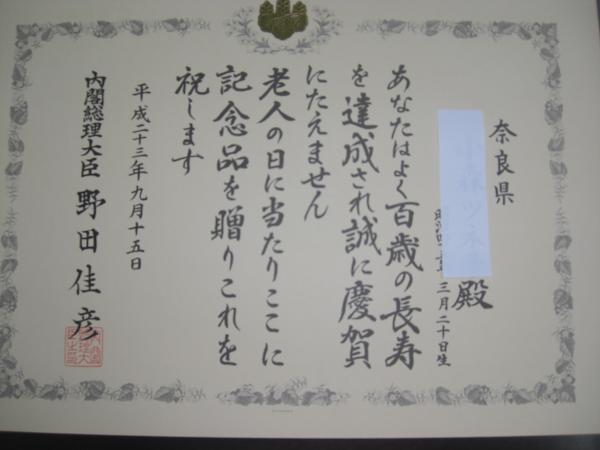 奈良県
殿
三月二十日生
あなたはよく百歳の長寿
を達成され誠に慶賀
にたえません
老人の日に当たりここに
記念品を贈りこれを
祝します
平成二十三年九月十五日
内閣総理大臣 野田佳彦